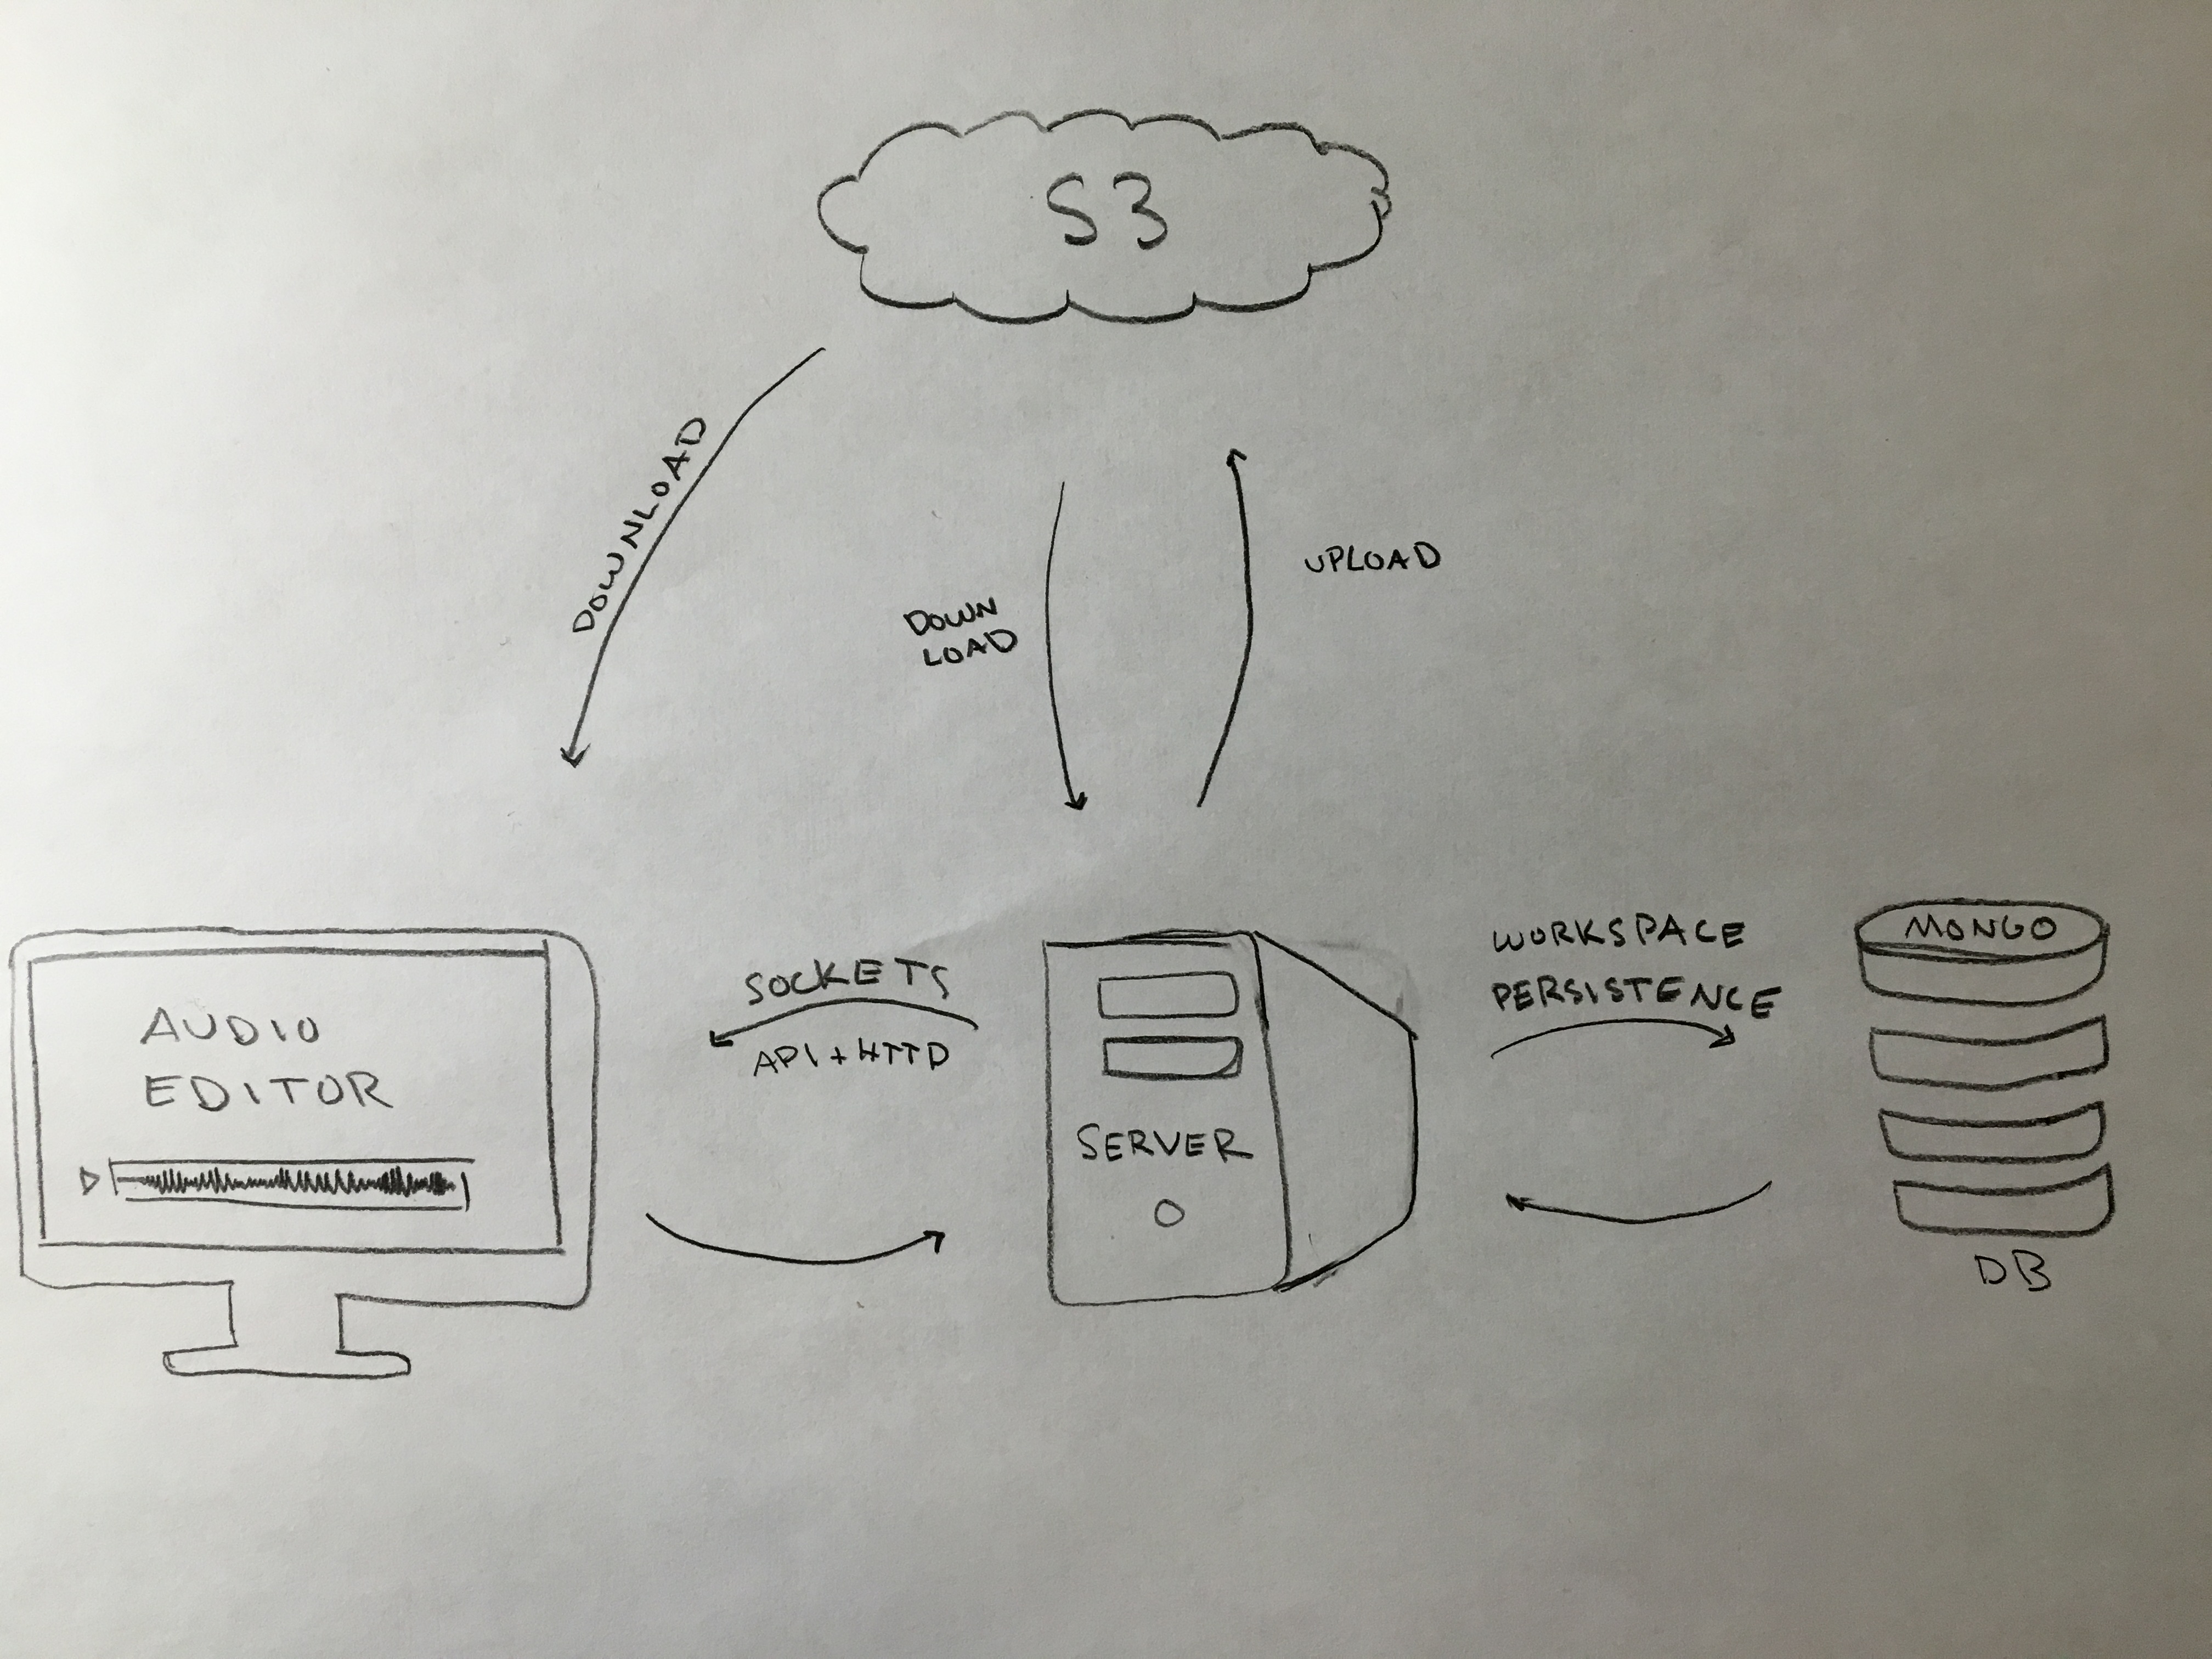 S3
DOWNLOAD
DOWN
LOAD
UPLOAD
AUDIO
EDITOR
SOCKETS
API + HTTP
SERVER
WORKSPACE
PERSISTENCE
MONGO
DB